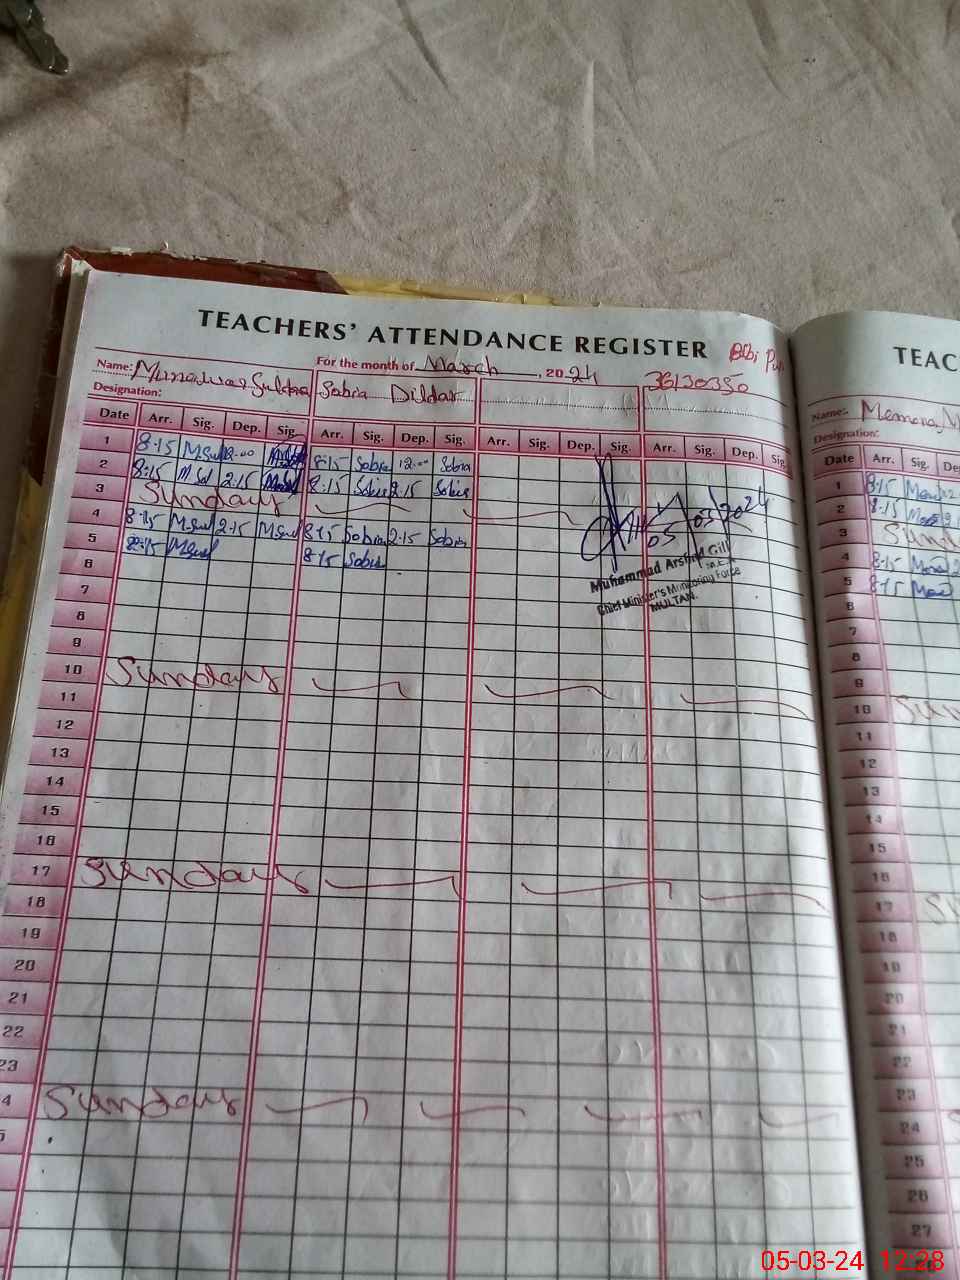 TEACHERS' ATTENDANCE REGISTER
Bibi
Name: Munawar Sultana For the month of March, 2024 36130350
Designation: Sabra Dildar
Date Arr. Sig. Dep. Sig. Arr. Sig. Dep. Sig. Arr. Sig. Dep. Sig. Arr. Sig. Dep. Sig.
1 8:15 M.Sul 12:00 8:15 Sabra 12:00 Sabra
2 8:15 M.Sul 2:15 8:15 Sabra 2:15 Sabra
3 Sunday
4 8:15 M.Sul 2:15 M.Sul 8:15 Sabra 2:15 Sabra
5 8:15 M.Sul 8:15 Sabra
6
7
8
9
10 Sunday
11
12
13
14
15
16
17 Sunday
18
19
20
21
22
23
4 Sunday
5
05/03/2024
Muhammad Arshid Gill
Chief Minister's Monitoring Force
MULTAN.
TEAC
Name:
Designation:
Date Arr. Sig. Dep.
1 8:15
2 8:15
3 Sunda
4 8:15
5 8:15
6
7
8
9
10 Sun
11
12
13
14
15
16
17 Su
18
19
20
21
22
23
24 S
25
26
27
05-03-24 12:28